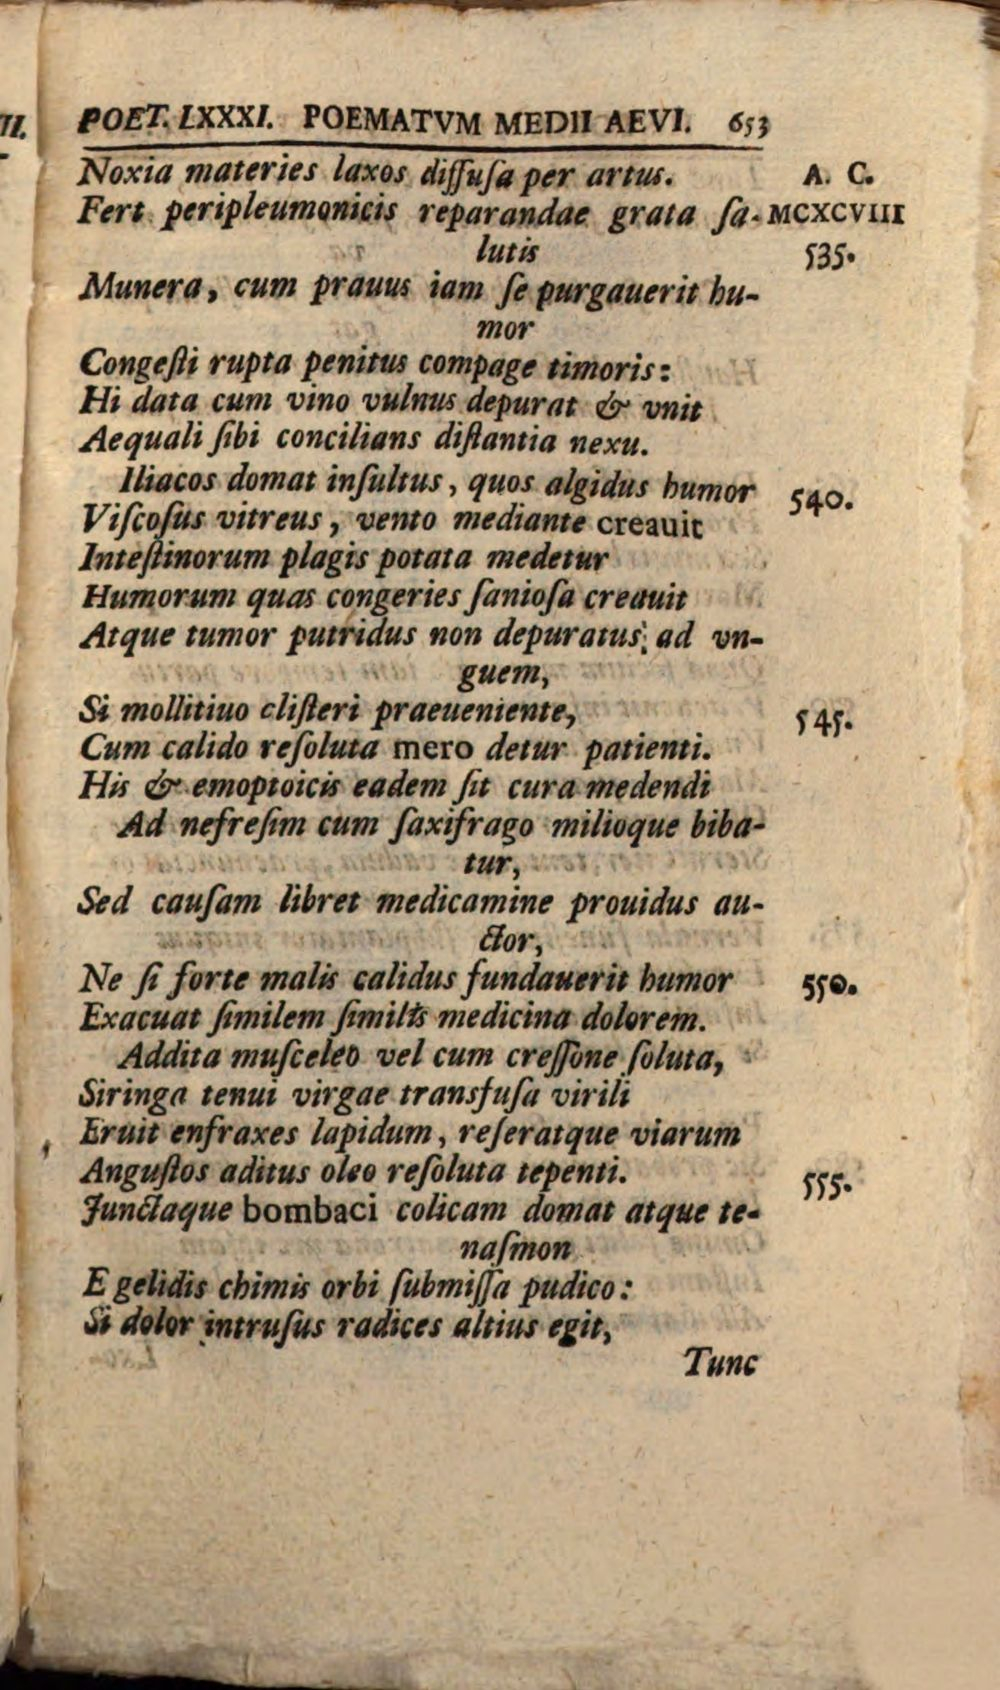 II.
POET. LXXXI. POEMATVM MEDII AEVI. 653
Noxia materies laxos diffuſa per artus. A. C.
Fert peripleumonicis reparandae grata ſa- MCXCVIII
lutis 535.
Munera, cum prauus iam ſe purgauerit hu-
mor
Congeſti rupta penitus compage timoris:
Hi data cum vino vulnus depurat & vnit
Aequali ſibi concilians diſtantia nexu.
Iliacos domat inſultus, quos algidus humor 540.
Viſcoſus vitreus, vento mediante creauit
Inteſtinorum plagis potata medetur
Humorum quas congeries ſanioſa creauit
Atque tumor putridus non depuratus; ad vn-
guem,
Si mollitiuo cliſteri praeueniente, 545.
Cum calido reſoluta mero detur patienti.
His & emoptoicis eadem ſit cura medendi
Ad nefreſim cum ſaxifrago milioque biba-
tur,
Sed cauſam libret medicamine prouidus au-
ctor,
Ne ſi forte malis calidus fundauerit humor 550.
Exacuat ſimilem ſimilis medicina dolorem.
Addita muſceleo vel cum creſſone ſoluta,
Siringa tenui virgae transfuſa virili
Eruit enfraxes lapidum, reſeratque viarum
Anguſtos aditus oleo reſoluta tepenti. 555.
Junctaque bombaci colicam domat atque te-
naſmon
E gelidis chimis orbi ſubmiſſa pudico:
Si dolor intruſus radices altius egit,
Tunc